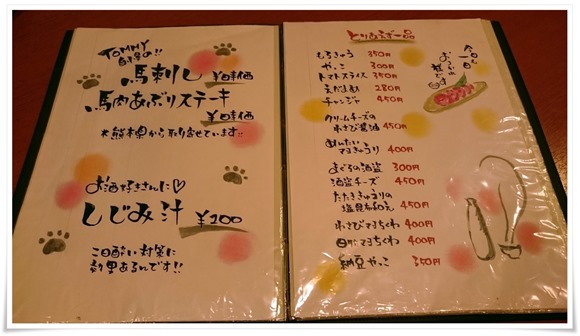 TOMMY
自慢の!!
馬刺し ¥時価
馬肉あぶりステーキ
¥時価
*熊本県から取り寄せています!!
お酒好きさんに♡
しじみ汁 ¥200
二日酔い対策に
効果あるんです!!
とりあえず一品
今日も一日
もろきゅう 350円
やっこ 300円
トマトスライス 350円
えだまめ 280円
チャンジャ 450円
クリームチーズの
わさび醤油 450円
めんたい
マヨきゅうり 400円
まぐろの酒盗 300円
酒盗チーズ 450円
たたききゅうりの
塩昆布和え 450円
わさびマヨちくわ 400円
明太マヨちくわ 400円
納豆やっこ 350円